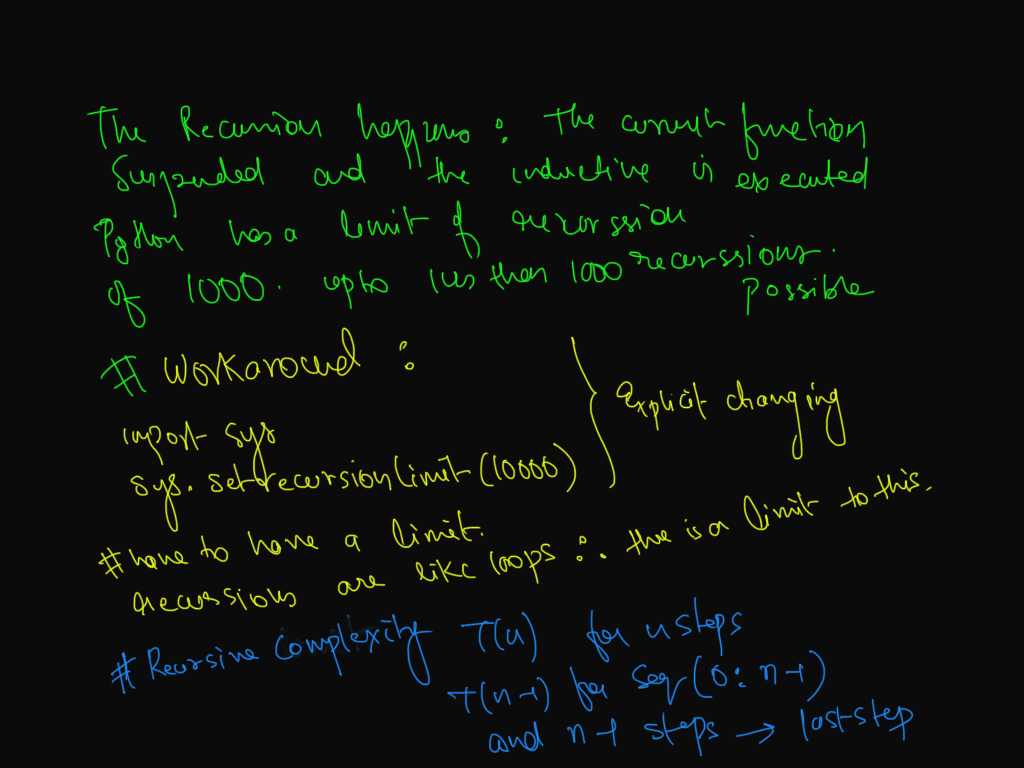 The Recursion happens : The current function
Suspended and the inductive is executed
Python has a limit of recurssion
of 1000. upto less than 1000 recurssions.
possible
# Workaround :
import sys
sys. setrecursionlimit (10000)
Explicit changing
# have to have a limit.
recurssions are like loops ∴ the is a limit to this.
# Recursive Complexity T(n) for n steps
T(n-1) for Seq (0: n-1)
and n-1 steps → last step